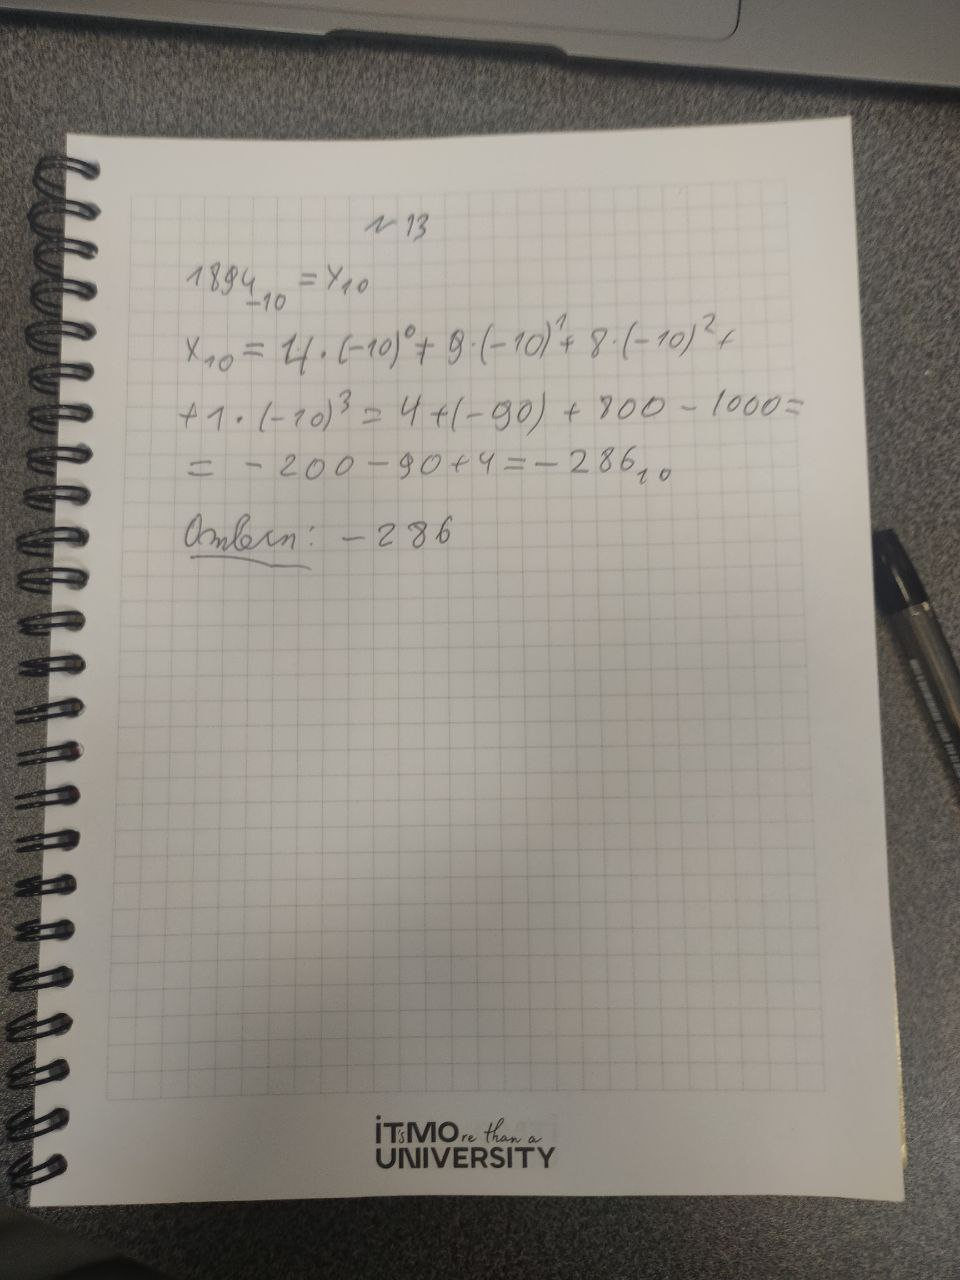 № 13
1894₋₁₀ = X₁₀
X₁₀ = 4 · (-10)⁰ + 9 · (-10)¹ + 8 · (-10)² +
+ 1 · (-10)³ = 4 + (-90) + 800 - 1000 =
= - 200 - 90 + 4 = - 286₁₀
Ответ: - 286
it'sMOre than a
UNIVERSITY